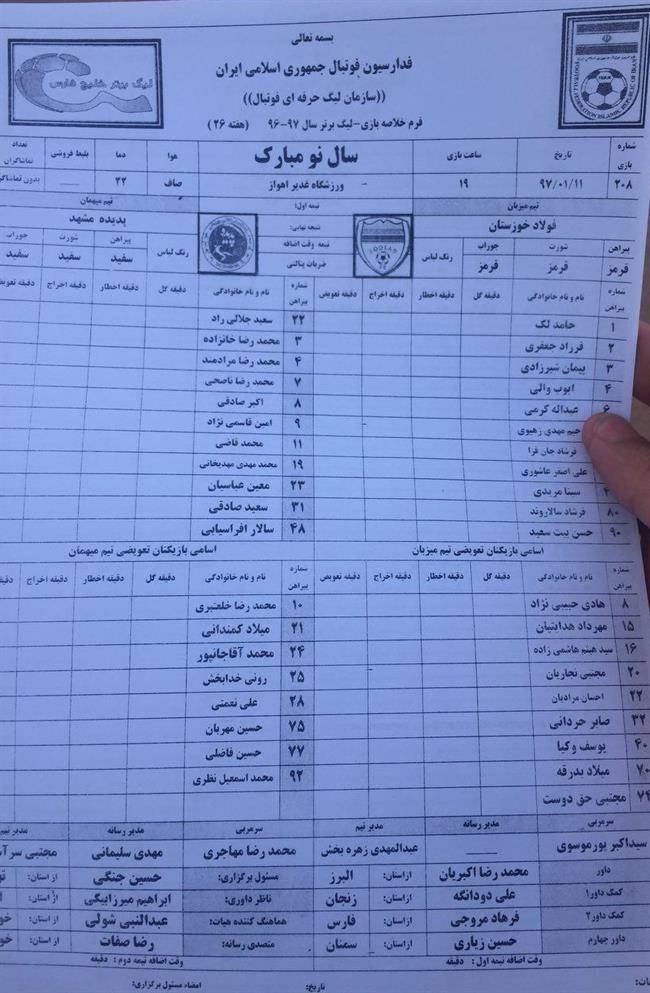 بسمه تعالی
فدراسیون فوتبال جمهوری اسلامی ایران
((سازمان لیگ حرفه ای فوتبال))
فرم خلاصه بازی-لیگ برتر سال ۹۷-۹۶ (هفته ۲۶)
لیگ برتر خلیج فارس
شماره بازی تاریخ ساعت بازی سال نو مبارک هوا دما بلیط فروشی تعداد تماشاگران
۲۰۸ ۹۷/۰۱/۱۱ ۱۹ ورزشگاه غدیر اهواز صاف ۲۲ بدون تماشاگر
تیم میزبان نیمه اول: تیم میهمان
فولاد خوزستان نتیجه نهایی: پدیده مشهد
پیراهن شورت جوراب رنگ لباس نیمه وقت اضافه رنگ لباس پیراهن شورت جوراب
قرمز قرمز قرمز ضربات پنالتی سفید سفید سفید
شماره پیراهن نام و نام خانوادگی دقیقه گل دقیقه اخطار دقیقه اخراج دقیقه تعویض شماره پیراهن نام و نام خانوادگی دقیقه گل دقیقه اخطار دقیقه اخراج دقیقه تعویض
۱ حامد لک ۲۲ سعید جلالی راد
۲ فرزاد جعفری ۳ محمد رضا خانزاده
۳ پیمان شیرزادی ۴ محمد رضا مرادمند
۴ ایوب والی ۷ محمد رضا ناصحی
۶ عبداله کرمی ۸ اکبر صادقی
مهدی زهیوی ۹ امین قاسمی نژاد
فرشاد جان فزا ۱۱ محمد قاضی
علی اصغر عاشوری ۱۹ محمد مهدی مهدیخانی
سینا مریدی ۲۳ معین عباسیان
۸۰ فرشاد سالاروند ۳۱ سعید صادقی
۹۰ حسن بیت سعید ۴۸ سالار افراسیابی
اسامی بازیکنان تعویضی تیم میزبان اسامی بازیکنان تعویضی تیم میهمان
شماره پیراهن نام و نام خانوادگی دقیقه گل دقیقه اخطار دقیقه اخراج دقیقه تعویض شماره پیراهن نام و نام خانوادگی دقیقه گل دقیقه اخطار دقیقه اخراج
۸ هادی حبیبی نژاد ۱۰ محمد رضا خلعتبری
۱۵ مهرداد هدایتیان ۲۱ میلاد کمندانی
۱۶ سید هیثم هاشمی زاده ۲۴ محمد آقاجانپور
۲۰ مجتبی نجاریان ۲۵ رونی خدابخش
۲۲ احسان مرادیان ۲۸ علی نعمتی
۳۲ صابر حردانی ۷۵ حسین مهربان
۴۰ یوسف وکیا ۷۷ حسین فاضلی
۷۰ میلاد بدرقه ۹۲ محمد اسمعیل نظری
۷۴ مجتبی حق دوست
سرمربی مدیر رسانه مدیر تیم سرمربی مدیر رسانه مدیر تیم
سیداکبر پورموسوی عبدالمهدی زهره بخش محمد رضا مهاجری مهدی سلیمانی مجتبی
داور محمد رضا اکبریان از استان: البرز مسئول برگزاری: حسین جنگی از استان:
کمک داور۱ علی دودانگه از استان: زنجان ناظر داوری: ابراهیم میرزابیگی از استان:
کمک داور۲ فرهاد مروجی از استان: فارس هماهنگ کننده هیات: عبدالنبی شولی
داور چهارم حسین زیاری از استان: سمنان متصدی رسانه: رضا صفات از استان:
وقت اضافه نیمه اول : دقیقه وقت اضافه نیمه دوم : دقیقه
تاریخ: امضاء مسئول برگزاری: